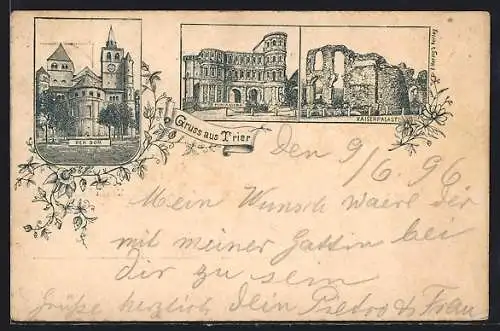 DER DOM
KAISERPALAST
Gruss aus Trier
Den 9/6. 96
Mein Wunsch waere der
mit meiner Gattin bei
dir zu sein
Grüße herzlich dein Pietro & Frau